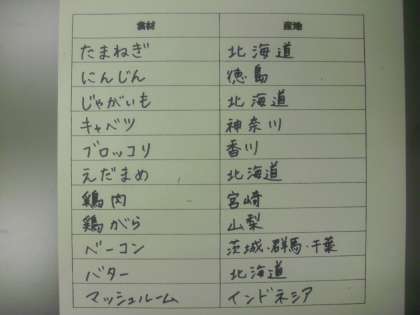 食材 産地
たまねぎ 北海道
にんじん 徳島
じゃがいも 北海道
キャベツ 神奈川
ブロッコリ 香川
えだまめ 北海道
鶏肉 宮崎
鶏がら 山梨
ベーコン 茨城・群馬・千葉
バター 北海道
マッシュルーム インドネシア